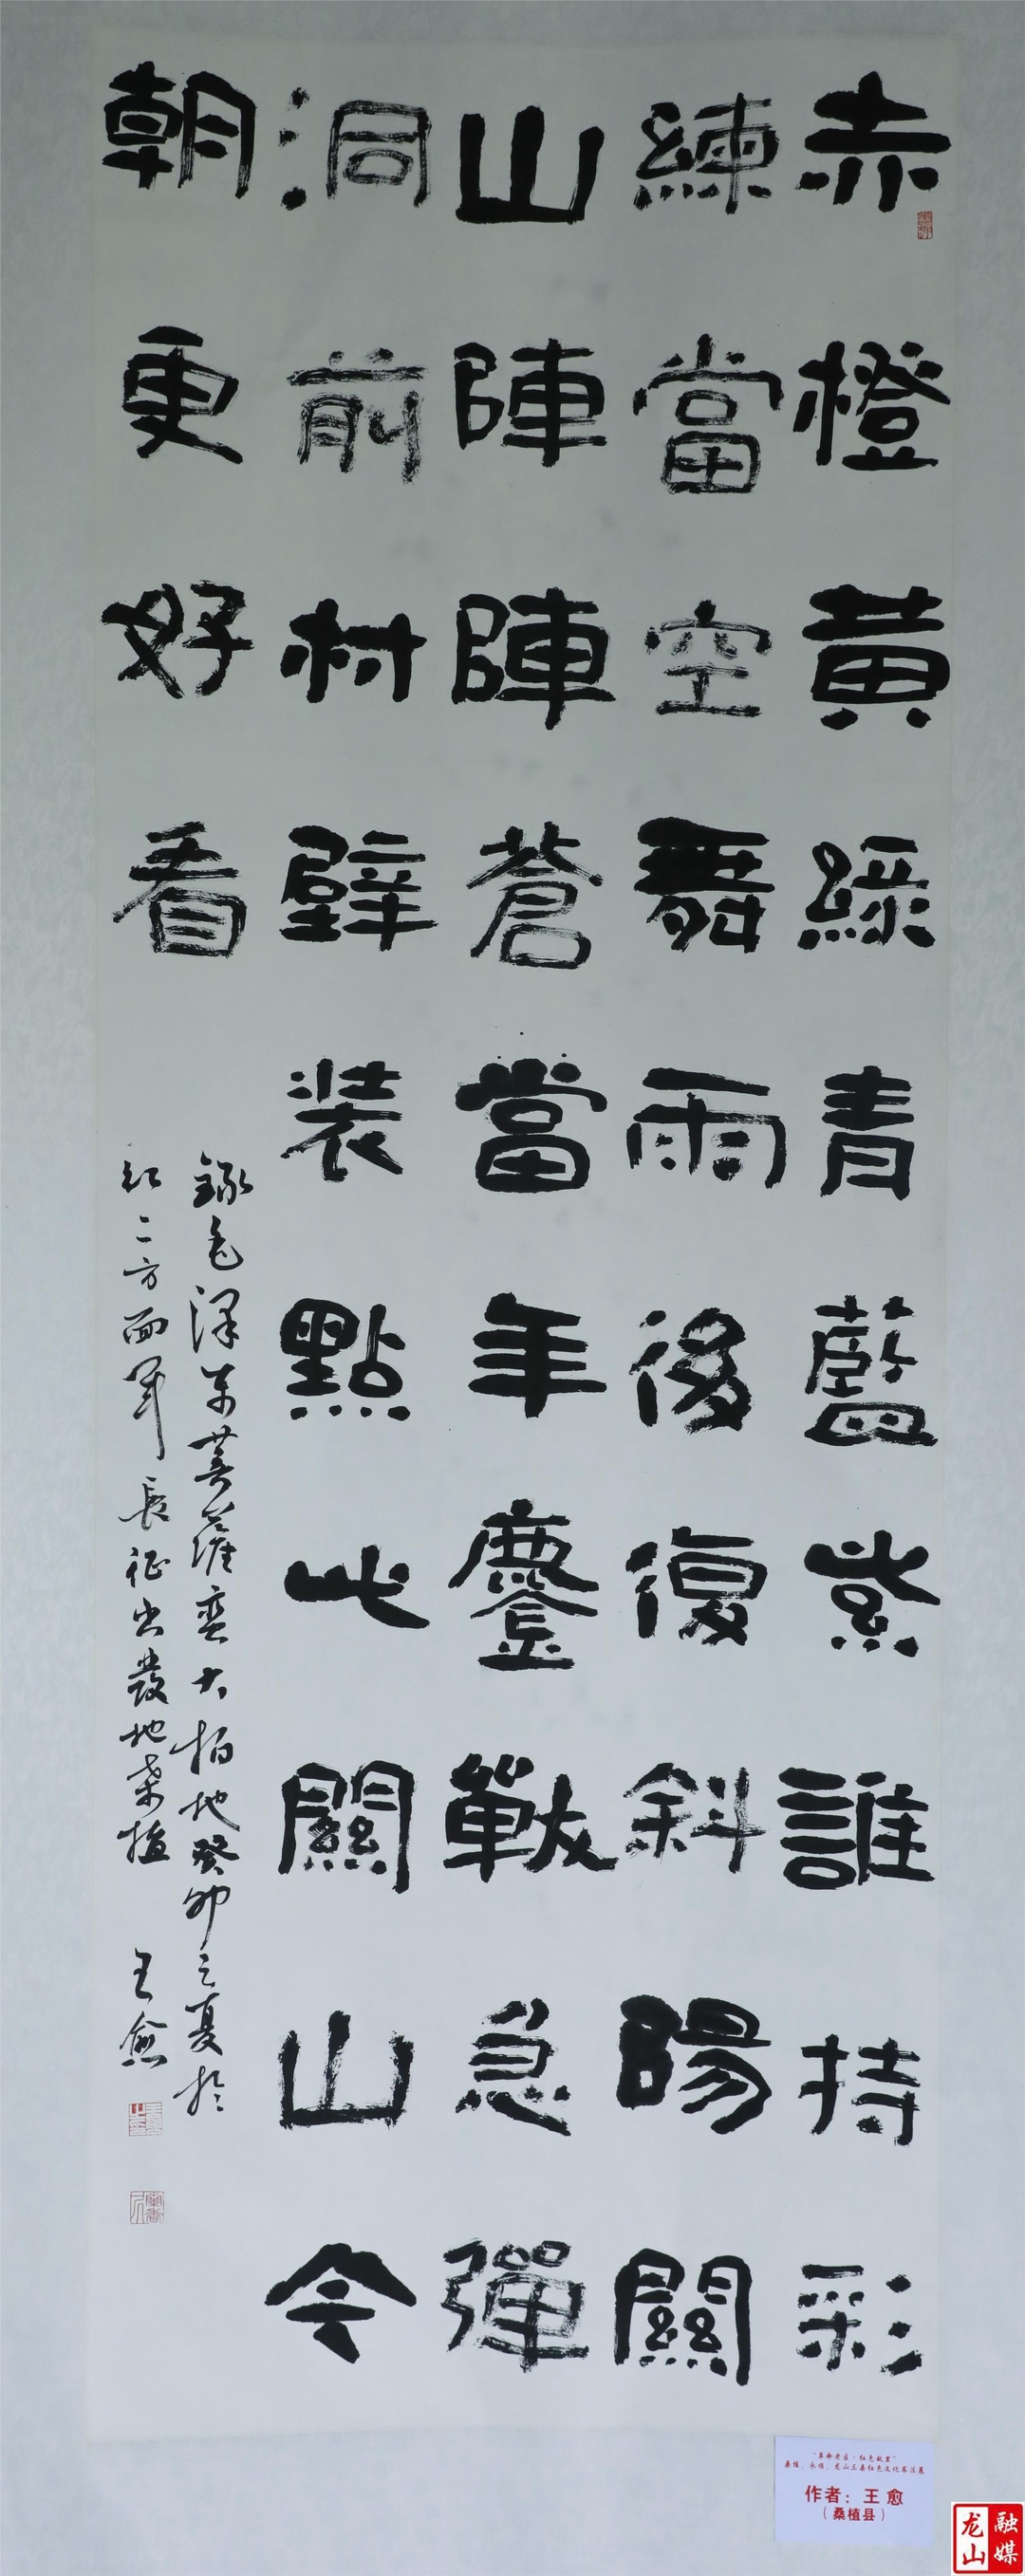 赤橙黃綠青藍紫誰持彩
練當空舞雨後復斜陽關
山陣陣蒼當年鏖戰急彈
洞前村壁裝點此關山今
朝更好看
錄毛澤东菩薩蛮大柏地癸卯之夏於
紅二方面軍長征出發地桑植 王愈
“革命老区·红色故里”
桑植、永顺、龙山三县红色文化书法展
作者：王愈
（桑植县）
龙山融媒